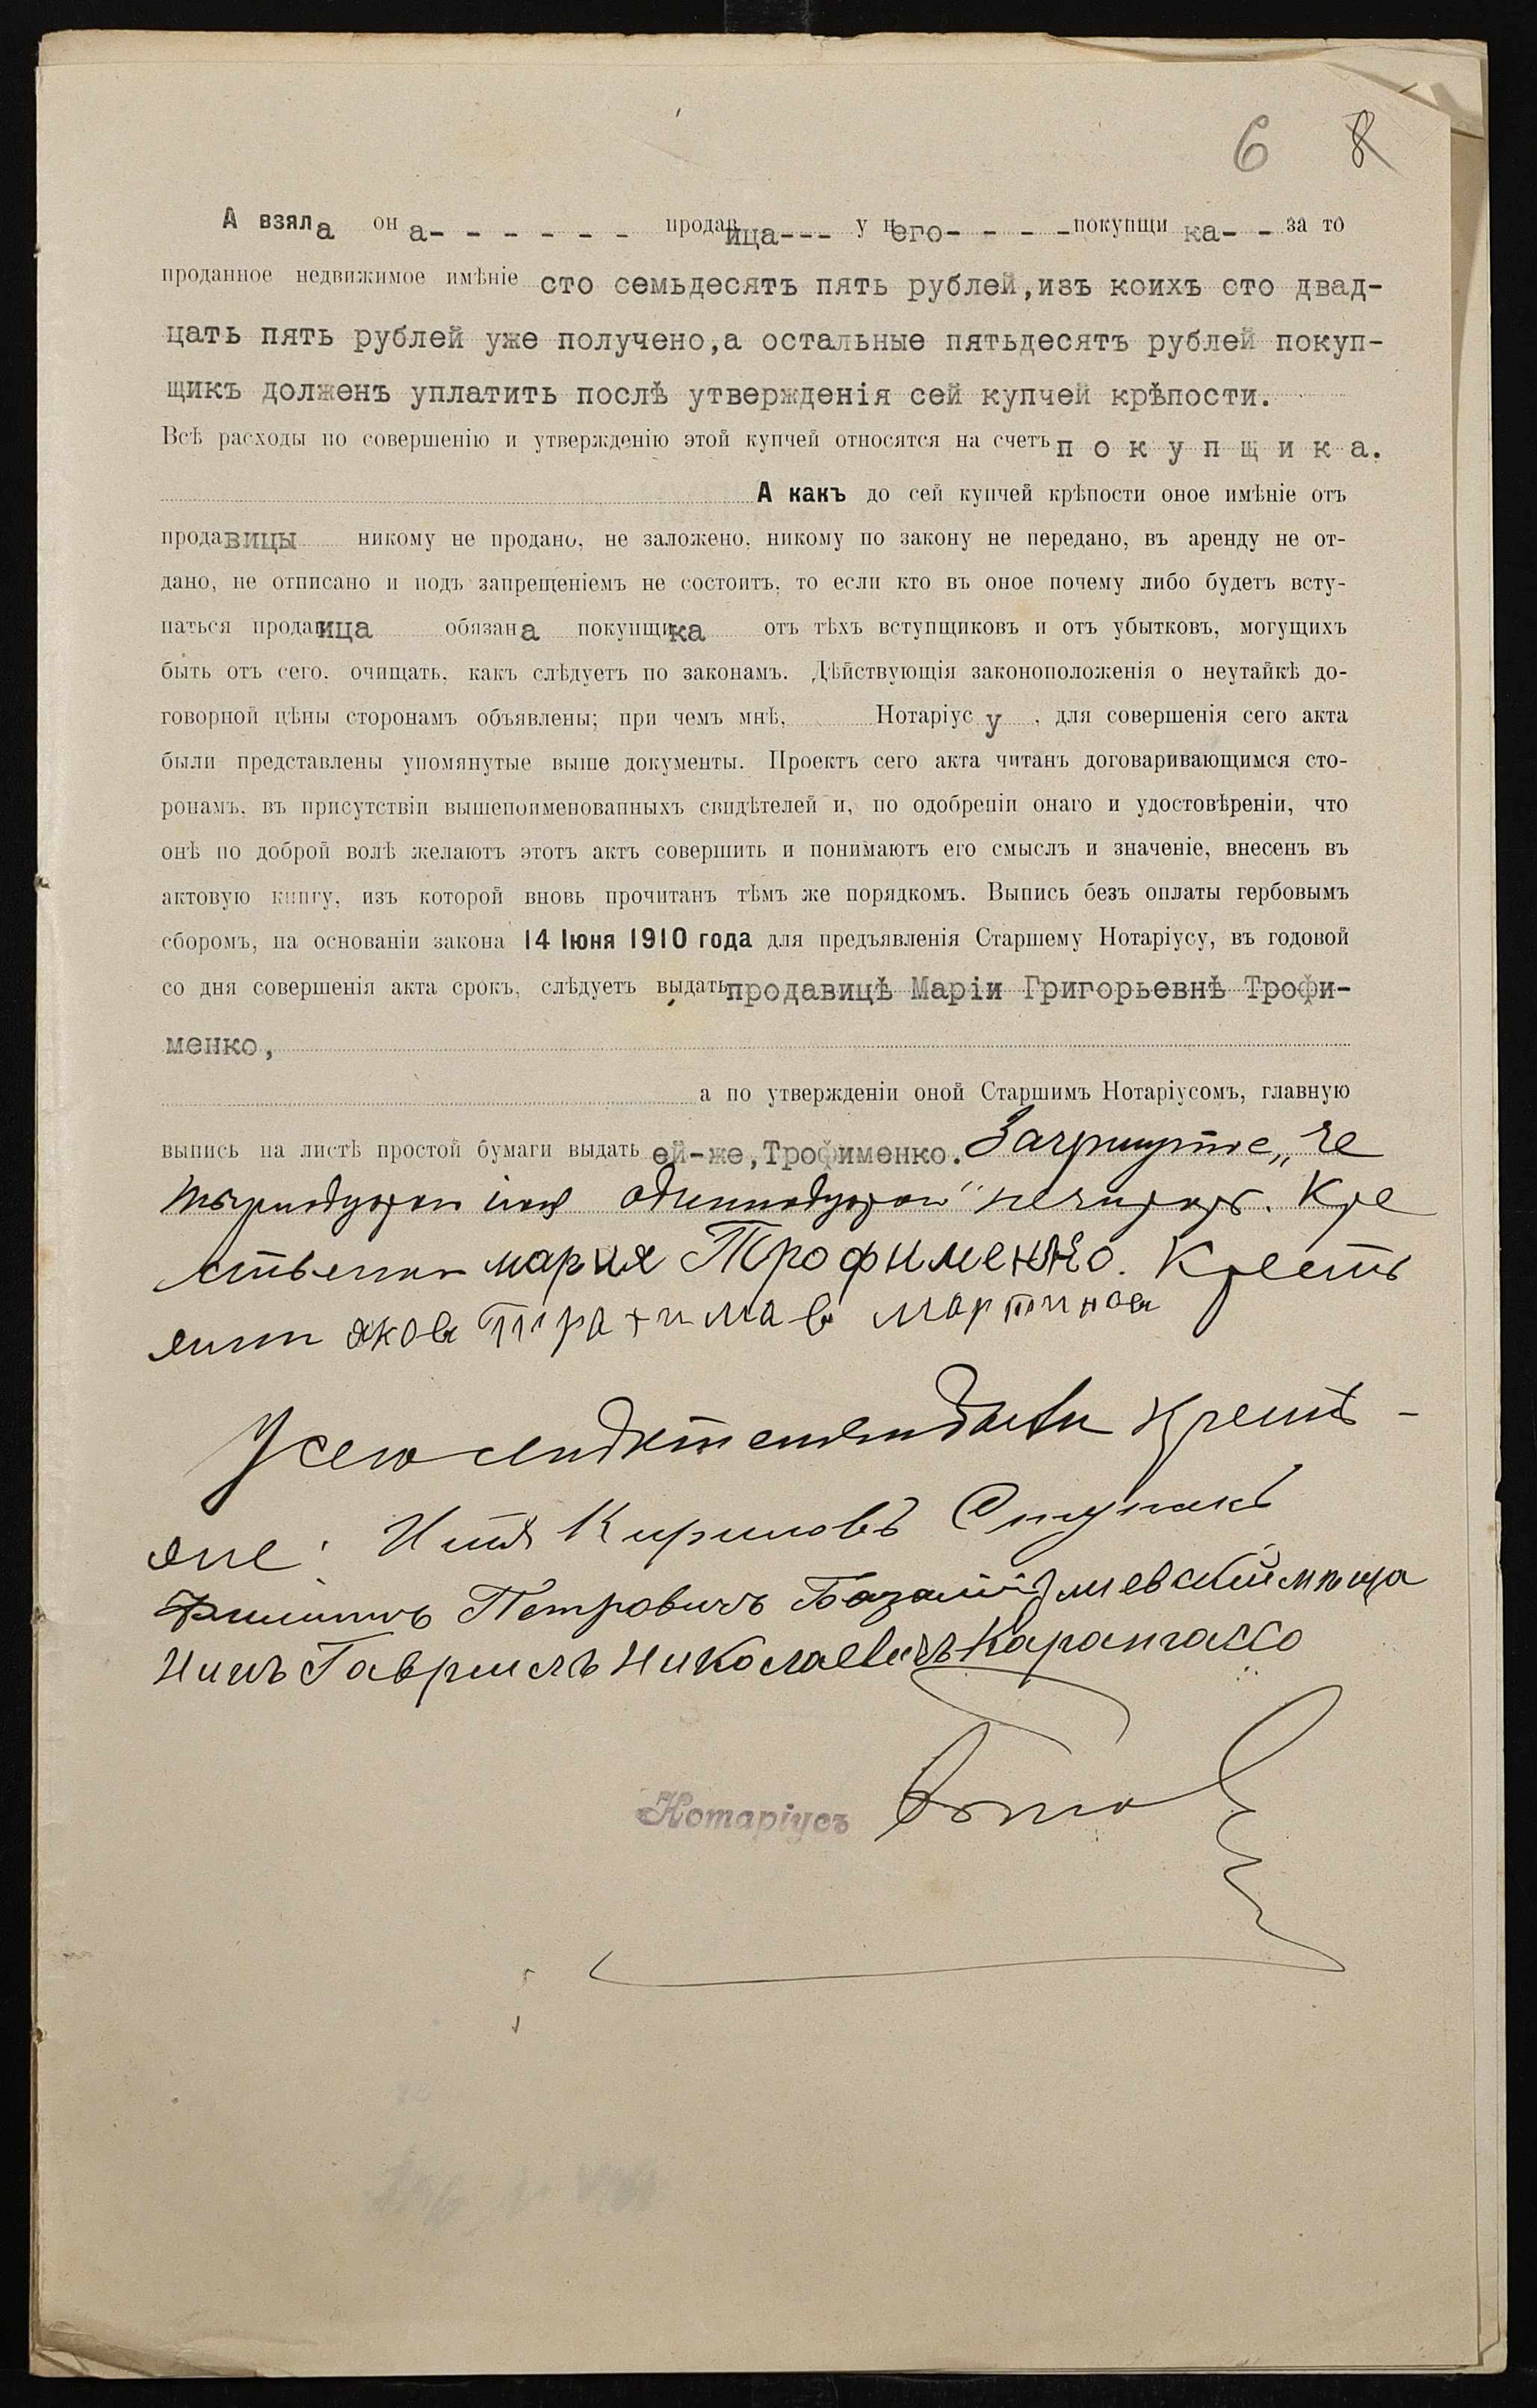 6 8
А взяла она- - - - - - продавица--- у него- - - -покупщика- - за то
проданное недвижимое имѣніе сто семьдесятъ пять рублей,изъ коихъ сто двад-
цать пять рублей уже получено,а остальные пятьдесятъ рублей покуп-
щикъ долженъ уплатить послѣ утвержденія сей купчей крѣпости.
Всѣ расходы по совершенію и утвержденію этой купчей относятся на счетъ покупщика.
А какъ до сей купчей крѣпости оное имѣніе отъ
продавицы никому не продано, не заложено, никому по закону не передано, въ аренду не от-
дано, не отписано и подъ запрещеніемъ не состоитъ, то если кто въ оное почему либо будетъ всту-
паться продавица обязана покупщика отъ тѣхъ вступщиковъ и отъ убытковъ, могущихъ
быть отъ сего, очищать, какъ слѣдуетъ по законамъ. Дѣйствующія законоположенія о неутайкѣ до-
говорной цѣны сторонамъ объявлены; при чемъ мнѣ, Нотаріусу, для совершенія сего акта
были представлены упомянутые выше документы. Проектъ сего акта читанъ договаривающимся сто-
ронамъ, въ присутствіи вышепоименованныхъ свидѣтелей и, по одобреніи онаго и удостовѣреніи, что
онѣ по доброй волѣ желаютъ этотъ актъ совершить и понимаютъ его смыслъ и значеніе, внесенъ въ
актовую книгу, изъ которой вновь прочитанъ тѣмъ же порядкомъ. Выпись безъ оплаты гербовымъ
сборомъ, на основаніи закона 14 Іюня 1910 года для предъявленія Старшему Нотаріусу, въ годовой
со дня совершенія акта срокъ, слѣдуетъ выдать продавицѣ Маріи Григорьевнѣ Трофи-
менко,
а по утвержденіи оной Старшимъ Нотаріусомъ, главную
выпись на листѣ простой бумаги выдать ей-же,Трофименко. Зачеркнутое „че
не читать. Кре
стьянка мария Трофименко. Кресть
янин яков мартинов
У сего свидѣтелями были кресть-
яне: Кириловъ
Филиппъ Петровичъ мѣща
нинъ Гавриилъ Николаевичъ Карангассо
Нотаріусъ